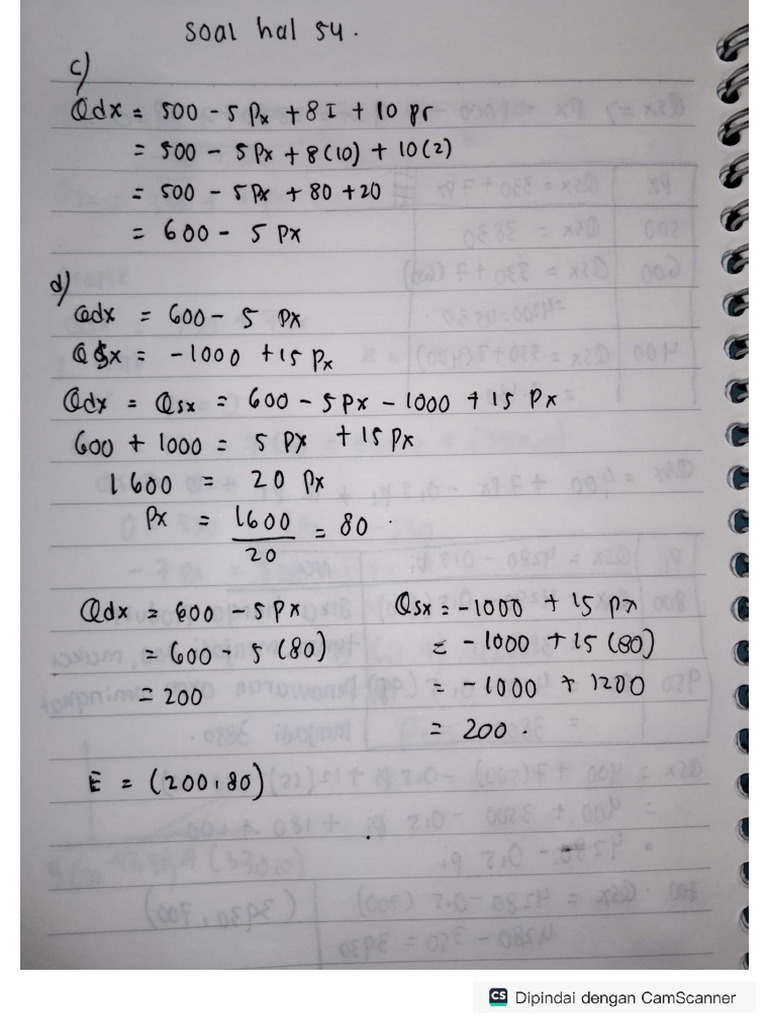 soal hal 54.
c)
Qdx = 500 - 5 Px + 8 I + 10 pr
= 500 - 5 Px + 8(10) + 10(2)
= 500 - 5 Px + 80 + 20
= 600 - 5 Px
d)
Qdx = 600 - 5 Px
Qsx = -1000 + 15 Px
Qdx = Qsx = 600 - 5 Px - 1000 + 15 Px
600 + 1000 = 5 Px + 15 Px
1600 = 20 Px
Px = 1600/20 = 80
Qdx = 600 - 5 Px
= 600 - 5 (80)
= 200
Qsx = -1000 + 15 Px
= -1000 + 15 (80)
= -1000 + 1200
= 200.
E = (200,80)
CS Dipindai dengan CamScanner